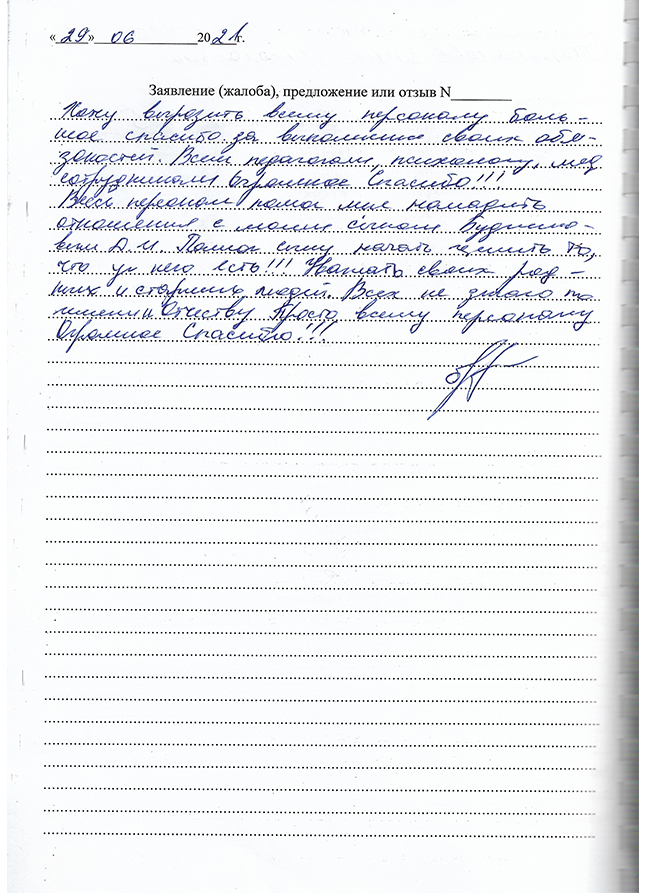 « 29 » 06 2021 г.
Заявление (жалоба), предложение или отзыв N
Хочу выразить всему персоналу боль-
шое спасибо за выполнение своих обя-
заностей. Всем педагогам, психологу, мед
сотрудникам Огромное Спасибо!!!
Весь персонал помог мне наладить
отношения с моим сыном
Д.И. Помог сыну начать ценить то,
что у него есть!!! Уважать своих род-
ных и старших людей. Всех не знаю по
имени и Отчеству Просто всему персоналу
Огромное Спасибо!!!